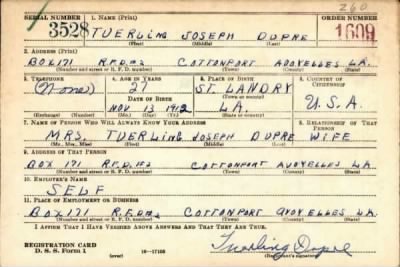 260
SERIAL NUMBER 1. NAME (Print) ORDER NUMBER
3528 TUERLING JOSEPH DUPRE 1609
(First) (Middle) (Last)
2. ADDRESS (Print)
BOX 171 R.F.D. #2 COTTONPORT AVOYELLES LA.
(Number and street or R. F. D. number) (Town) (County) (State)
3. TELEPHONE 4. AGE IN YEARS 5. PLACE OF BIRTH 6. COUNTRY OF CITIZENSHIP
(None) 27 ST. LANDRY
DATE OF BIRTH (Town or county)
NOV 13 1912 LA. U.S.A
(Exchange) (Number) (Mo.) (Day) (Yr.) (State or country)
7. NAME OF PERSON WHO WILL ALWAYS KNOW YOUR ADDRESS 8. RELATIONSHIP OF THAT PERSON
MRS. TUERLING JOSEPH DUPRE WIFE
(Mr., Mrs., Miss) (First) (Middle) (Last)
9. ADDRESS OF THAT PERSON
BOX 171 R.F.D. #2 COTTONPORT AVOYELLES LA.
(Number and street or R. F. D. number) (Town) (County) (State)
10. EMPLOYER'S NAME
SELF
11. PLACE OF EMPLOYMENT OR BUSINESS
BOX 171 R.F.D. #2 COTTONPORT AVOYELLES LA.
(Number and street or R. F. D. number) (Town) (County) (State)
I AFFIRM THAT I HAVE VERIFIED ABOVE ANSWERS AND THAT THEY ARE TRUE.
REGISTRATION CARD
D. S. S. Form 1 16—17105 Tuerling Dupre
(Registrant's signature)